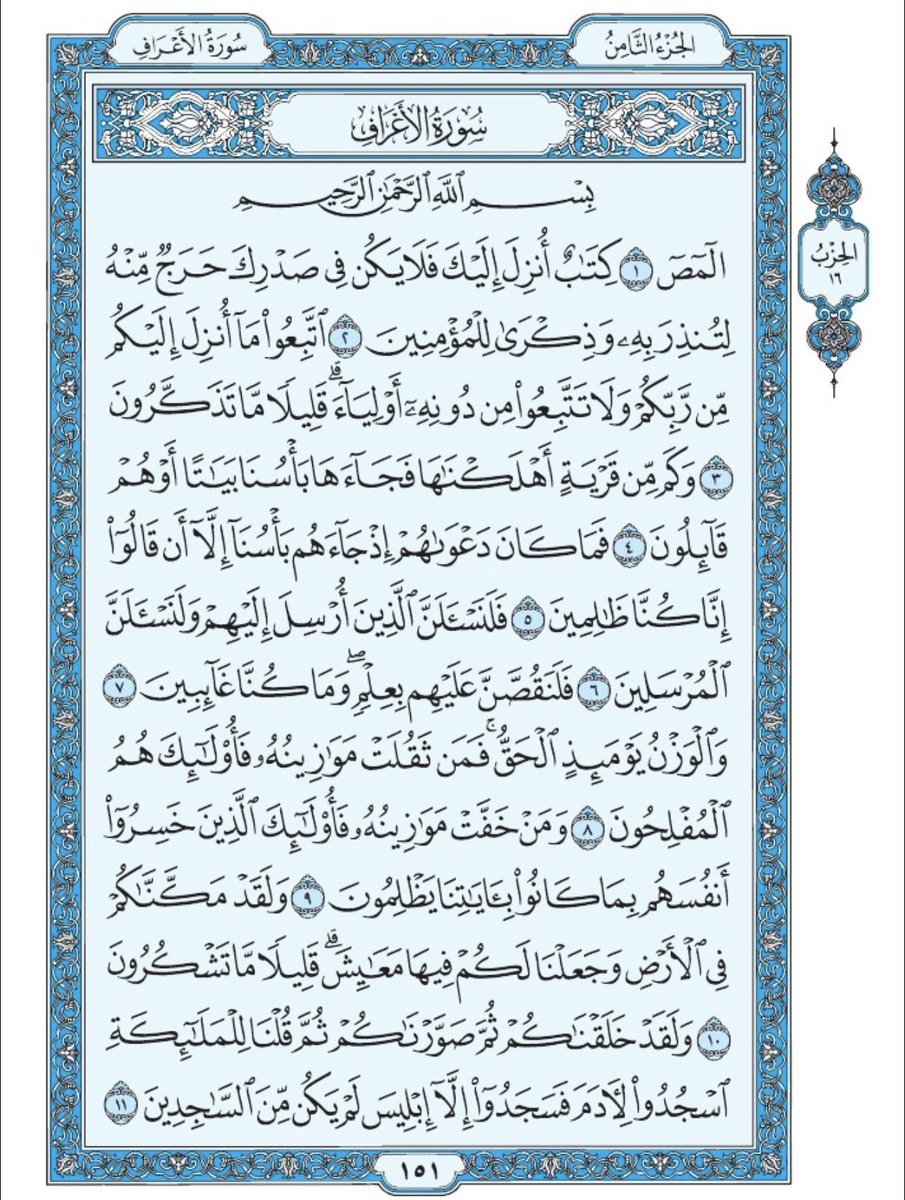 الجُزْءُ الثَّامِنُ
سُورَةُ الأَعْرَافِ
سُورَةُ الأَعْرَافِ
بِسْمِ ٱللَّهِ ٱلرَّحْمَٰنِ ٱلرَّحِيمِ
الٓمٓصٓ ١ كِتَٰبٌ أُنزِلَ إِلَيْكَ فَلَا يَكُن فِى صَدْرِكَ حَرَجٌ مِّنْهُ
لِتُنذِرَ بِهِۦ وَذِكْرَىٰ لِلْمُؤْمِنِينَ ٢ ٱتَّبِعُوا۟ مَآ أُنزِلَ إِلَيْكُم
مِّن رَّبِّكُمْ وَلَا تَتَّبِعُوا۟ مِن دُونِهِۦٓ أَوْلِيَآءَ ۗ قَلِيلًا مَّا تَذَكَّرُونَ
٣ وَكَم مِّن قَرْيَةٍ أَهْلَكْنَٰهَا فَجَآءَهَا بَأْسُنَا بَيَٰتًا أَوْ هُمْ
قَآئِلُونَ ٤ فَمَا كَانَ دَعْوَىٰهُمْ إِذْ جَآءَهُم بَأْسُنَآ إِلَّآ أَن قَالُوٓا۟
إِنَّا كُنَّا ظَٰلِمِينَ ٥ فَلَنَسْـَٔلَنَّ ٱلَّذِينَ أُرْسِلَ إِلَيْهِمْ وَلَنَسْـَٔلَنَّ
ٱلْمُرْسَلِينَ ٦ فَلَنَقُصَّنَّ عَلَيْهِم بِعِلْمٍ ۖ وَمَا كُنَّا غَآئِبِينَ ٧
وَٱلْوَزْنُ يَوْمَئِذٍ ٱلْحَقُّ ۚ فَمَن ثَقُلَتْ مَوَٰزِينُهُۥ فَأُو۟لَٰٓئِكَ هُمُ
ٱلْمُفْلِحُونَ ٨ وَمَنْ خَفَّتْ مَوَٰزِينُهُۥ فَأُو۟لَٰٓئِكَ ٱلَّذِينَ خَسِرُوٓا۟
أَنفُسَهُم بِمَا كَانُوا۟ بِـَٔايَٰتِنَا يَظْلِمُونَ ٩ وَلَقَدْ مَكَّنَّٰكُمْ
فِى ٱلْأَرْضِ وَجَعَلْنَا لَكُمْ فِيهَا مَعَٰيِشَ ۗ قَلِيلًا مَّا تَشْكُرُونَ
١٠ وَلَقَدْ خَلَقْنَٰكُمْ ثُمَّ صَوَّرْنَٰكُمْ ثُمَّ قُلْنَا لِلْمَلَٰٓئِكَةِ
ٱسْجُدُوا۟ لِـَٔادَمَ فَسَجَدُوٓا۟ إِلَّآ إِبْلِيسَ لَمْ يَكُن مِّنَ ٱلسَّٰجِدِينَ ١١
الحِزْبُ
١٦
١٥١